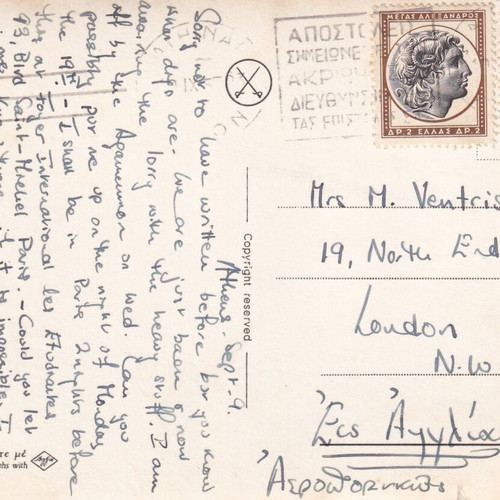 Athens. Sept. 9.
Sorry not to have written before but you know
what digs are. We are just back & now
awaiting the lorry with the heavy stuff. I am
off by the Agamemnon on Wed. Can you
possibly put me up on the night of Monday
the 19th – I shall be in Paris 2 nights before
that at Foyer International des Etudiantes
93, Blvd Saint-Michel Paris. – Could you let
me know there if it be impossible? I
ΑΠΟΣΤΟΛΕΙΣ
ΣΗΜΕΙΩΝΕΤΕ
ΑΚΡΙΒΗ
ΔΙΕΥΘΥΝΣΙΝ
ΤΑΣ ΕΠΙΣΤΟ
ΜΕΓΑΣ ΑΛΕΞΑΝΔΡΟΣ
ΔΡ. 2 ΕΛΛΑΣ ΔΡ. 2
Copyright reserved
Mrs M. Ventris
19, North End
London
N.W
Εις Αγγλία
Αεροπορικώς
τε μέ
phs with
Agfa